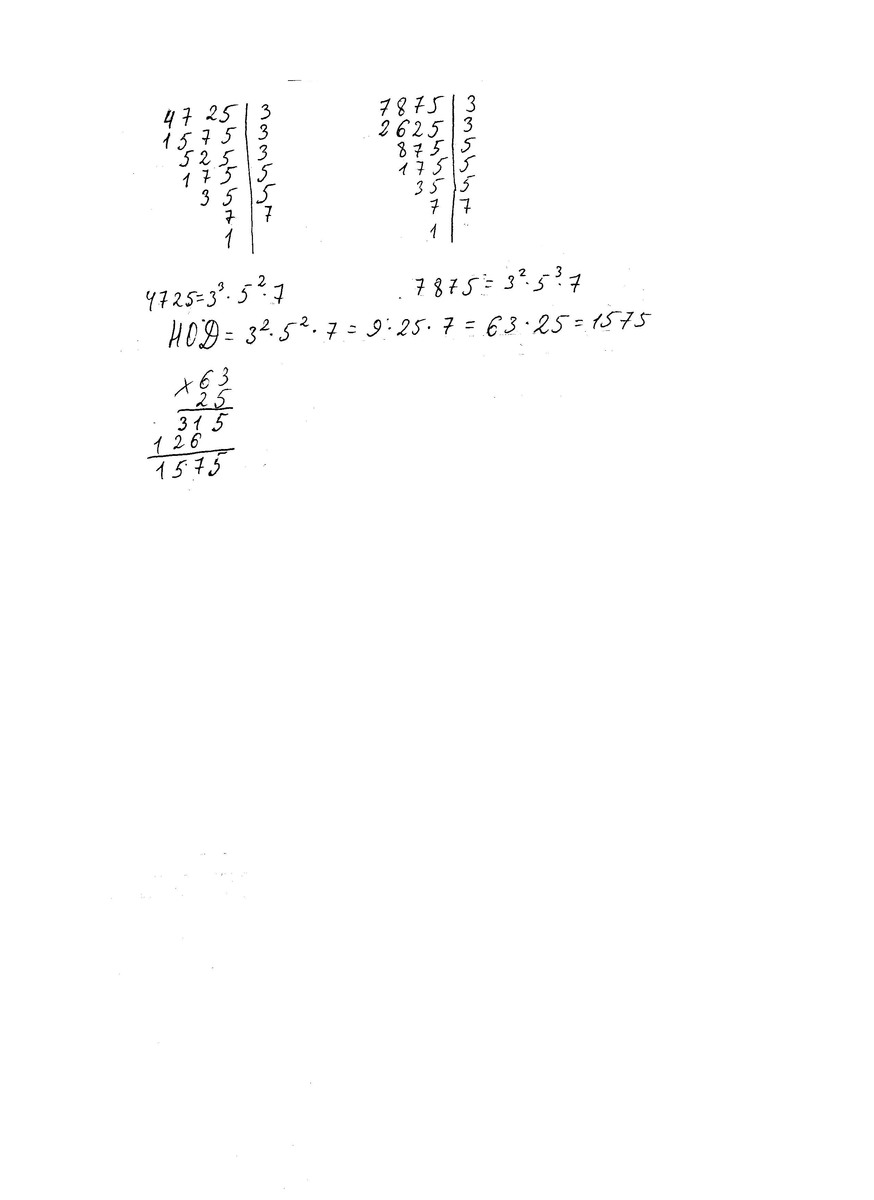 4725|3
1575|3
525|3
175|5
35|5
7|7
1|
7875|3
2625|3
875|5
175|5
35|5
7|7
1|
4725=3³·5²·7
7875=3²·5³·7
НОД=3²·5²·7=9·25·7=63·25=1575
×63
25
315
126
1575